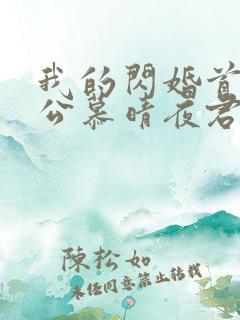 我的閃婚首
公慕晴夜君
陳松如
未经同意禁止转载